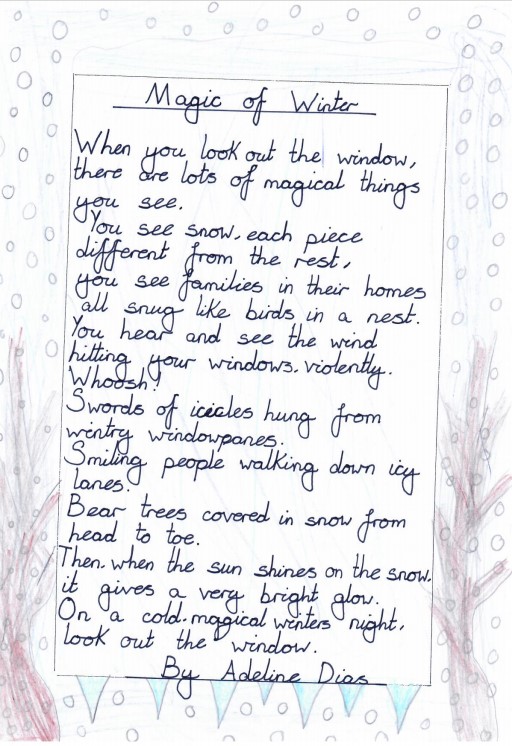 Magic of Winter
When you look out the window,
there are lots of magical things
you see.
You see snow, each piece
different from the rest,
you see families in their homes
all snug like birds in a nest.
You hear and see the wind
hitting your windows, violently.
Whoosh!
Swords of icicles hung from
wintry windowpanes.
Smiling people walking down icy
lanes.
Bear trees covered in snow from
head to toe.
Then, when the sun shines on the snow,
it gives a very bright glow.
On a cold, magical winters night,
look out the window.
By Adeline Dias